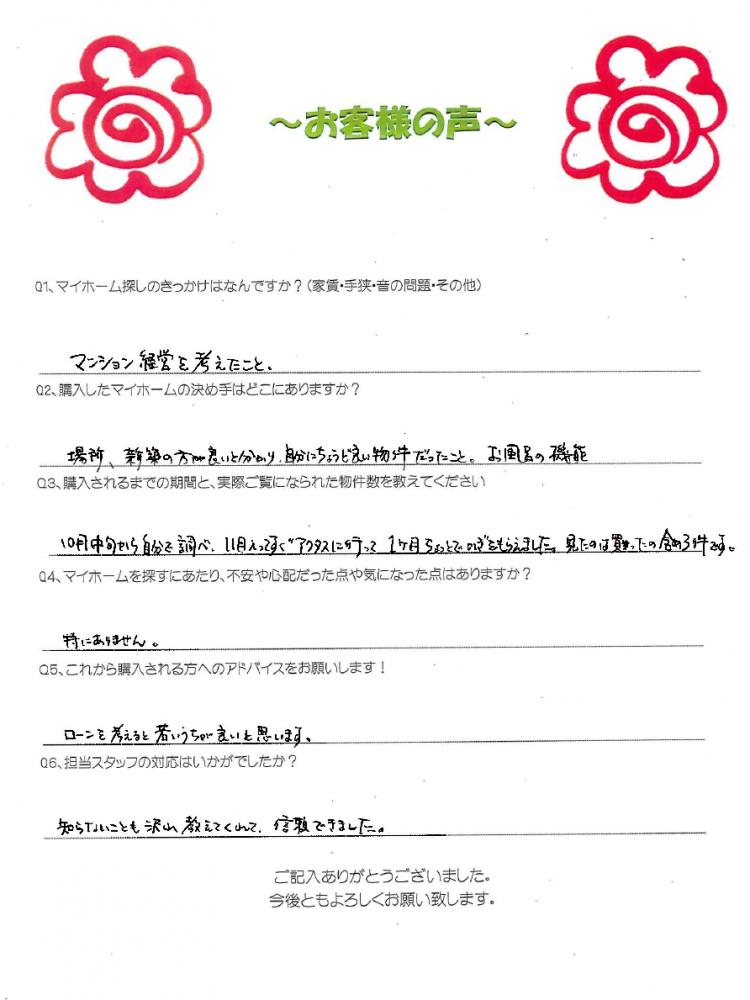 ～お客様の声～
Q1、マイホーム探しのきっかけはなんですか？(家賃・手狭・音の問題・その他)
マンション経営を考えたこと。
Q2、購入したマイホームの決め手はどこにありますか？
場所、新築の方が良いと分かり、自分にちょうど良い物件だったこと。お風呂の機能
Q3、購入されるまでの期間と、実際ご覧になられた物件数を教えてください
10月中旬から自分で調べ、11月入ってすぐアクタスに行って 1ヶ月ちょっとで をもらえました。見たのは買ったの含め3件です。
Q4、マイホームを探すにあたり、不安や心配だった点や気になった点はありますか？
特にありません。
Q5、これから購入される方へのアドバイスをお願いします！
ローンを考えると若いうちが良いと思います。
Q6、担当スタッフの対応はいかがでしたか？
知らないことも沢山教えてくれて、信頼できました。
ご記入ありがとうございました。
今後ともよろしくお願い致します。